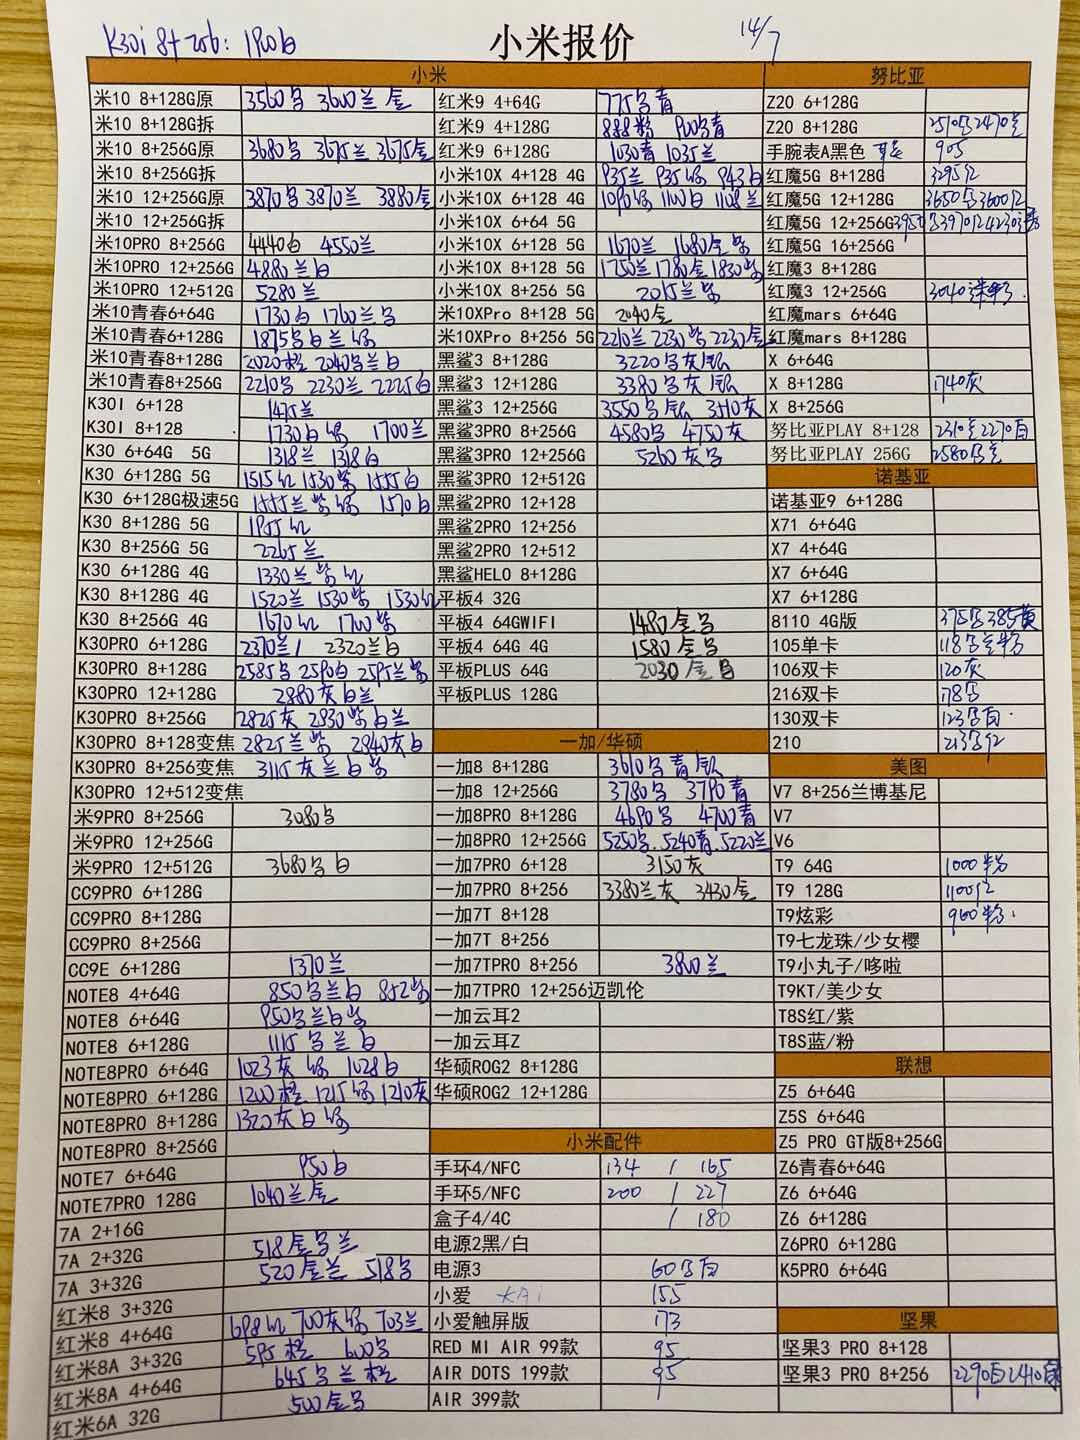 K30i 8+256: 1900白
小米报价
14/7
小米
米10 8+128G原 3560乌 3600兰 金
米10 8+128G拆
米10 8+256G原 3680乌 3675兰 3675金
米10 8+256G拆
米10 12+256G原 3870乌 3870兰 3880金
米10 12+256G拆
米10PRO 8+256G 4440白 4550兰
米10PRO 12+256G 4880兰白
米10PRO 12+512G 5280兰
米10青春6+64G 1730白 1760兰乌
米10青春6+128G 1875乌白兰绿
米10青春8+128G 2020橙 2040乌兰白
米10青春8+256G 2210乌 2230兰 2225白
K30I 6+128 1475兰
K30I 8+128 1730白绿 1700兰
K30 6+64G 5G 1318兰 1318白
K30 6+128G 5G 1515红 1530紫 1555白
K30 6+128G极速5G 1555兰紫绿 1570白
K30 8+128G 5G 1955红
K30 8+256G 5G 2265兰
K30 6+128G 4G 1330兰紫红
K30 8+128G 4G 1520兰 1530紫 1530红
K30 8+256G 4G 1670红 1700紫
K30PRO 6+128G 2370兰/ 2320兰白
K30PRO 8+128G 2585乌 2590白 2595兰紫
K30PRO 12+128G 2880灰白兰
K30PRO 8+256G 2825灰 2830紫白兰
K30PRO 8+128变焦 2825兰紫 2840灰白
K30PRO 8+256变焦 3115灰兰白紫
K30PRO 12+512变焦
米9PRO 8+256G 3080乌
米9PRO 12+256G
米9PRO 12+512G 3680乌白
CC9PRO 6+128G
CC9PRO 8+128G
CC9PRO 8+256G
CC9E 6+128G 1370兰
NOTE8 4+64G 850乌兰白 852紫
NOTE8 6+64G 950乌兰白紫
NOTE8 6+128G 1115乌兰白
NOTE8PRO 6+64G 1023灰绿 1028白
NOTE8PRO 6+128G 1200橙 1215绿 1210灰
NOTE8PRO 8+128G 1320灰白绿
NOTE8PRO 8+256G
NOTE7 6+64G 950白
NOTE7PRO 128G 1040兰金
7A 2+16G
7A 2+32G 518金乌兰
7A 3+32G 520金兰 518乌
红米8 3+32G
红米8 4+64G 698红 700灰绿 703兰
红米8A 3+32G 595橙 600乌
红米8A 4+64G 645乌兰橙
红米6A 32G 500金乌
红米9 4+64G 775乌青
红米9 4+128G 888粉 900乌青
红米9 6+128G 1030青 1035兰
小米10X 4+128 4G 935兰 935绿 943白
小米10X 6+128 4G 1090绿 1100白 1108兰
小米10X 6+64 5G
小米10X 6+128 5G 1670兰 1680金紫
小米10X 8+128 5G 1750兰 1780金 1830紫
小米10X 8+256 5G 2015兰紫
米10XPro 8+128 5G 2040金
米10XPro 8+256 5G 2210兰 2230紫 2230金
黑鲨3 8+128G 3220乌灰银
黑鲨3 12+128G 3380乌灰银
黑鲨3 12+256G 3550乌银 3410灰
黑鲨3PRO 8+256G 4580乌 4750灰
黑鲨3PRO 12+256G 5260灰乌
黑鲨3PRO 12+512G
黑鲨2PRO 12+128
黑鲨2PRO 12+256
黑鲨2PRO 12+512
黑鲨HELO 8+128G
平板4 32G
平板4 64GWIFI 1480金乌
平板4 64G 4G 1580金乌
平板PLUS 64G 2030金乌
平板PLUS 128G
一加/华硕
一加8 8+128G 3610乌青银
一加8 12+256G 3780乌 3790青
一加8PRO 8+128G 4690乌 4700青
一加8PRO 12+256G 5250乌.5240青.5220兰
一加7PRO 6+128 3150灰
一加7PRO 8+256 3380兰灰 3430金
一加7T 8+128
一加7T 8+256
一加7TPRO 8+256 3800兰
一加7TPRO 12+256迈凯伦
一加云耳2
一加云耳Z
华硕ROG2 8+128G
华硕ROG2 12+128G
小米配件
手环4/NFC 134 / 165
手环5/NFC 200 / 227
盒子4/4C / 180
电源2黑/白
电源3 60乌白
小爱 155
小爱触屏版 173
RED MI AIR 99款 95
AIR DOTS 199款 95
AIR 399款
努比亚
Z20 6+128G
Z20 8+128G 2510乌2470兰
手腕表A黑色 905
红魔5G 8+128G 3295红
红魔5G 12+128G 3650乌3600红
红魔5G 12+256G
红魔5G 16+256G
红魔3 8+128G
红魔3 12+256G 3040
红魔mars 6+64G
红魔mars 8+128G
X 6+64G
X 8+128G 1740灰
X 8+256G
努比亚PLAY 8+128 2310兰2270白
努比亚PLAY 256G 2580乌兰
诺基亚
诺基亚9 6+128G
X71 6+64G
X7 4+64G
X7 6+64G
X7 6+128G
8110 4G版 375乌385黄
105单卡 118乌兰粉
106双卡 120灰
216双卡 178乌
130双卡 123乌白
210 213乌红
美图
V7 8+256兰博基尼
V7
V6
T9 64G 1000粉
T9 128G 1100红
T9炫彩 960粉
T9七龙珠/少女樱
T9小丸子/哆啦
T9KT/美少女
T8S红/紫
T8S蓝/粉
联想
Z5 6+64G
Z5S 6+64G
Z5 PRO GT版8+256G
Z6青春6+64G
Z6 6+64G
Z6 6+128G
Z6PRO 6+128G
K5PRO 6+64G
坚果
坚果3 PRO 8+128
坚果3 PRO 8+256 2290白2410